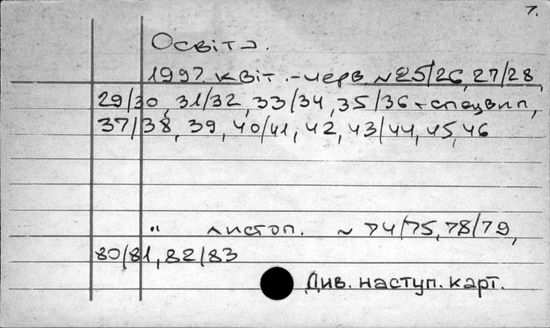 7.
Освіта.
1997 квіт.-черв. № 25/26, 27/28,
29/30, 31/32, 33/34, 35/36 + спецвип,
37/38, 39, 40/41, 42, 43/44, 45, 46
" листоп. № 74/75, 78/79,
80/81, 82/83
Див. наступ. карт.